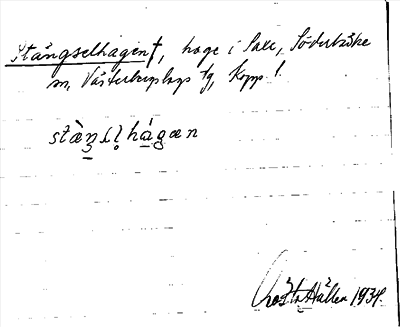 Stängselhagen†, hage i Sall, Söderbärke
sn, Västerbergslags tg, Kopp. l.
stàŋsl̥hágæn
Gösta Hällen 1934.